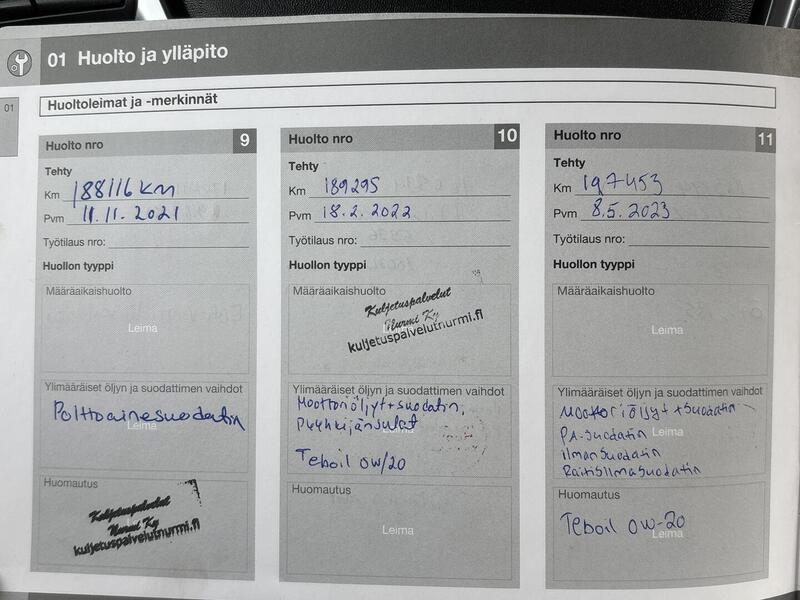 01 Huolto ja ylläpito
01
Huoltoleimat ja -merkinnät
Huolto nro 9
Tehty
Km 188116 KM
Pvm 11.11.2021
Työtilaus nro:
Huollon tyyppi
Määräaikaishuolto
Leima
Ylimääräiset öljyn ja suodattimen vaihdot
Polttoainesuodatin
Leima
Huomautus
Kuljetuspalvelut
Nurmi Ky
kuljetuspalvelutnurmi.fi
Huolto nro 10
Tehty
Km 189295
Pvm 18.2.2022
Työtilaus nro:
Huollon tyyppi
Määräaikaishuolto
Kuljetuspalvelut
Nurmi Ky
Leima
kuljetuspalvelutnurmi.fi
Ylimääräiset öljyn ja suodattimen vaihdot
Moottoriöljyt+suodatin,
Pyyhkijänsulat
Leima
Teboil 0w/20
Huomautus
Leima
Huolto nro 11
Tehty
Km 197453
Pvm 8.5.2023
Työtilaus nro:
Huollon tyyppi
Määräaikaishuolto
Leima
Ylimääräiset öljyn ja suodattimen vaihdot
Moottoriöljyt +suodatin
PA-suodatin
Leima
ilmansuodatin
Raitisilmasuodatin
Huomautus
Teboil 0w-20
Leima